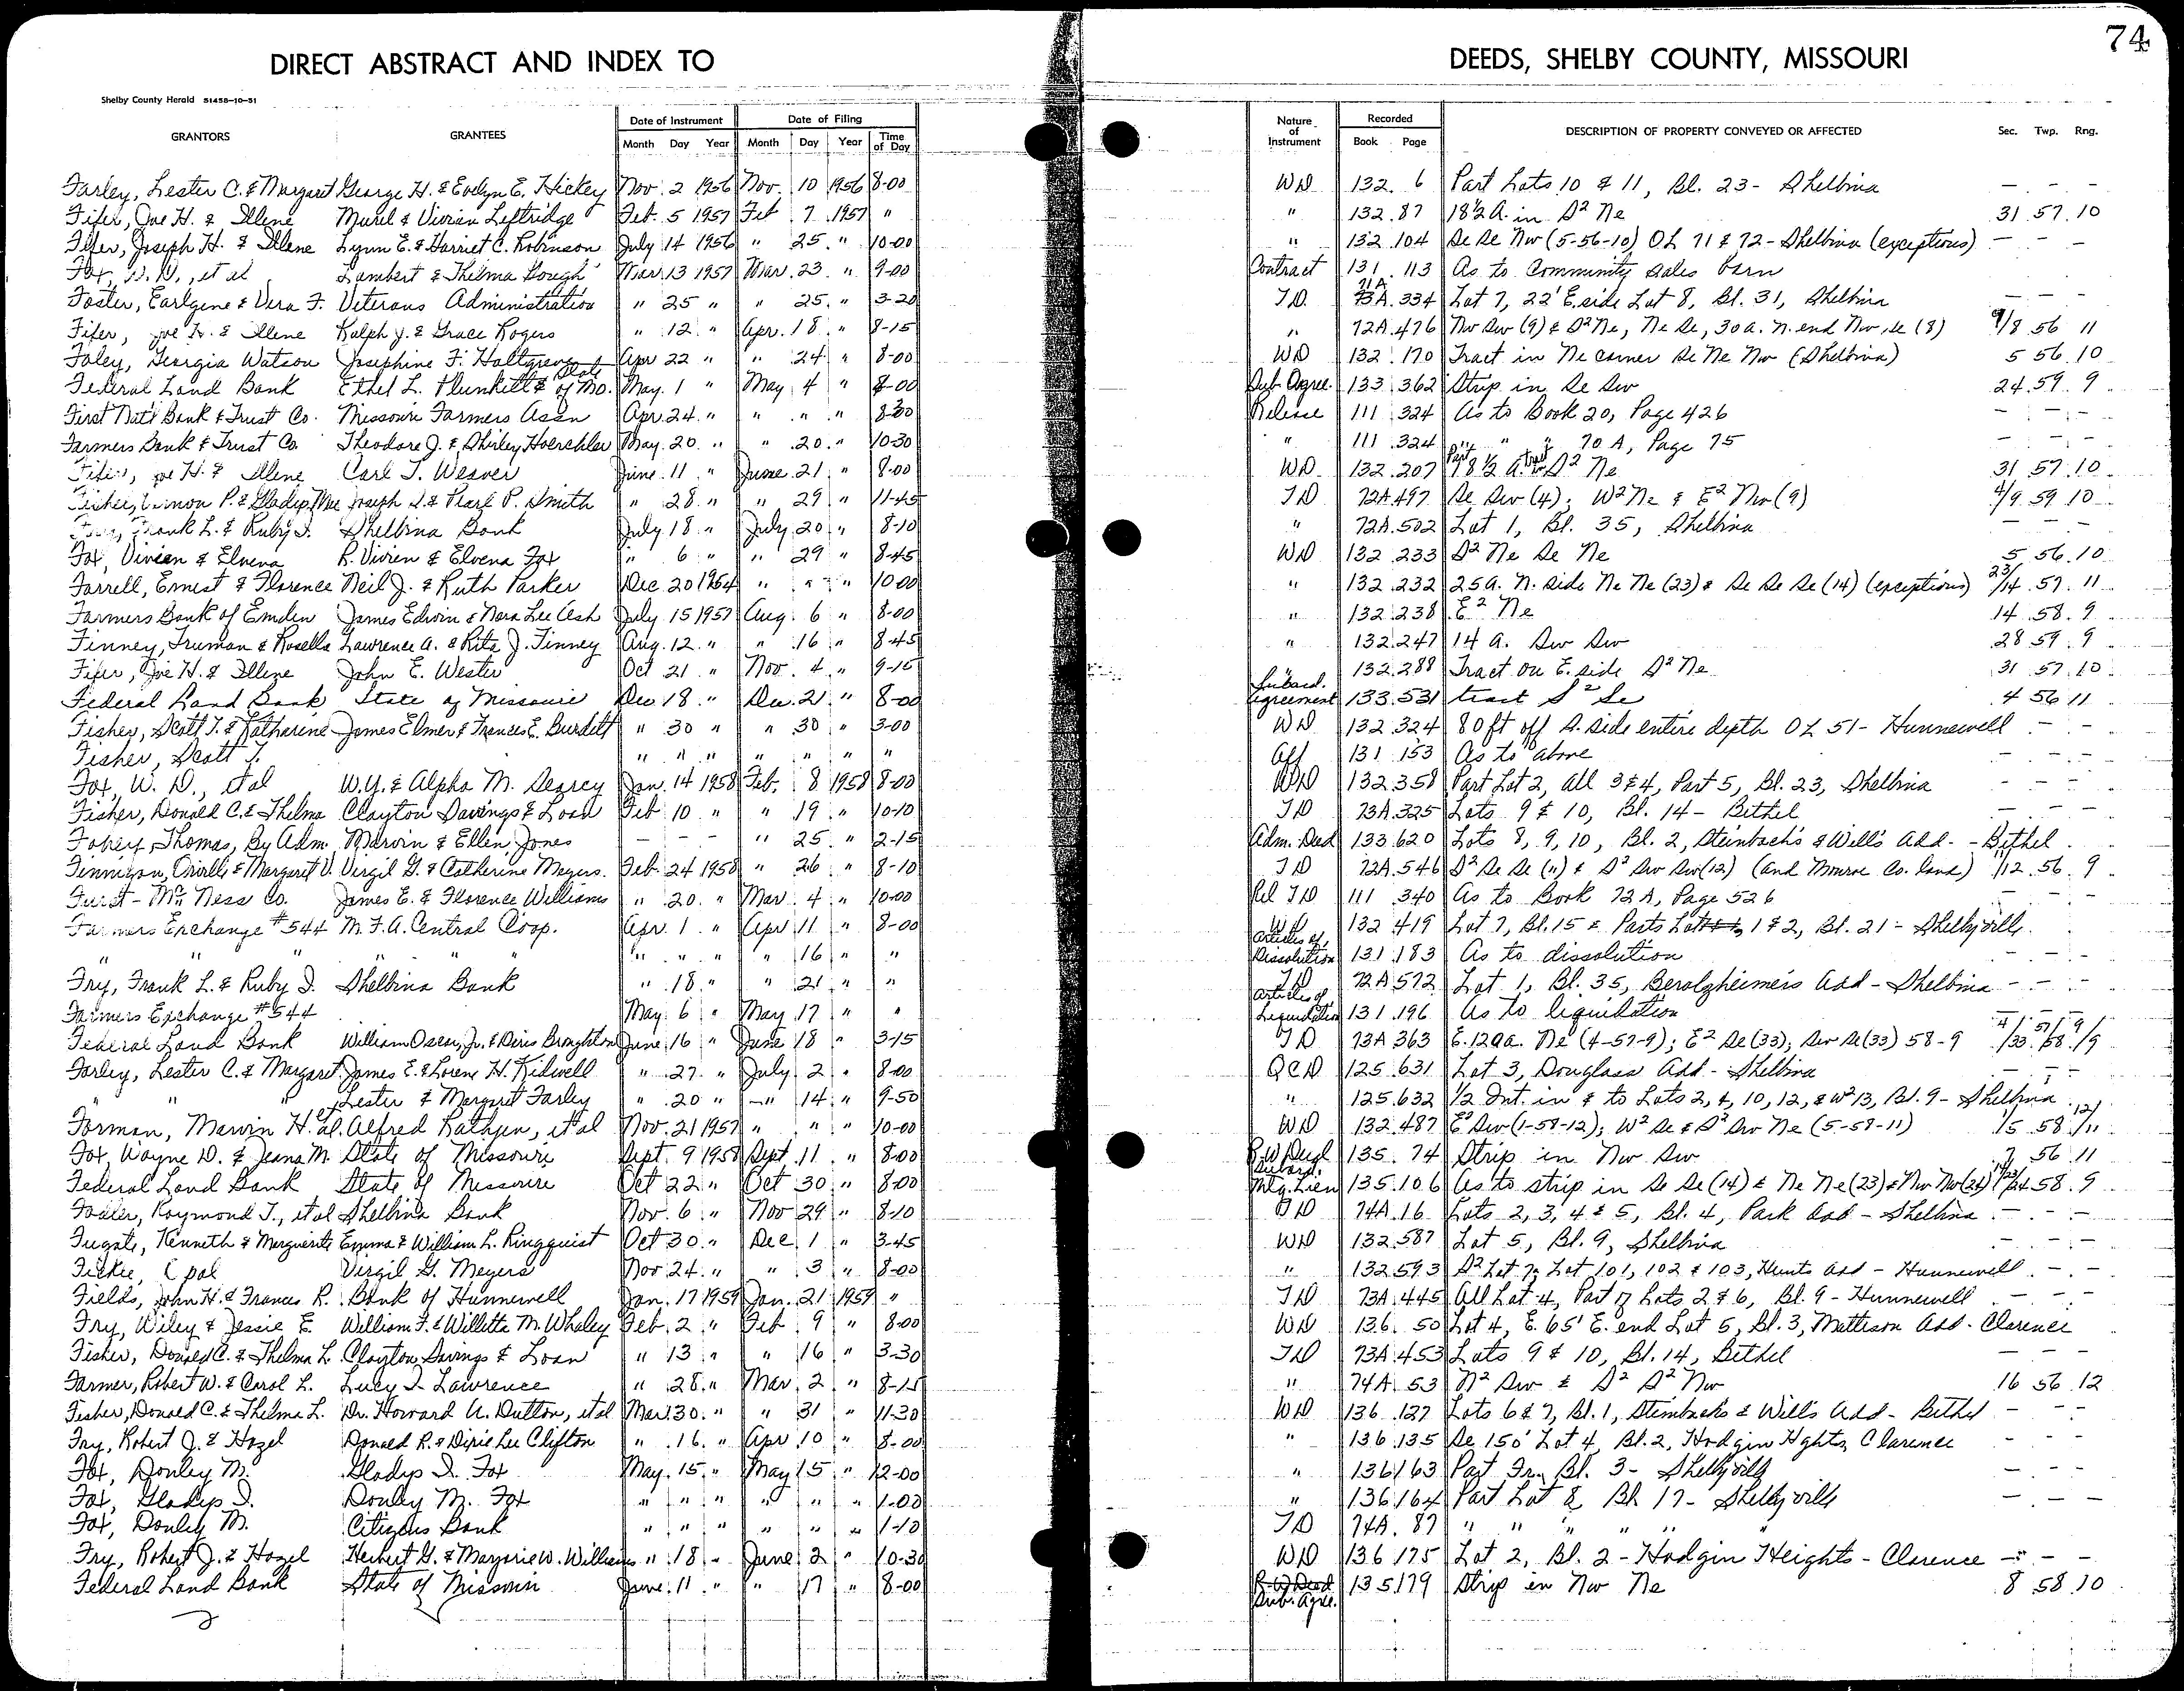 74
DIRECT ABSTRACT AND INDEX TO DEEDS, SHELBY COUNTY, MISSOURI
Shelby County Herald 51458-10-51
GRANTORS GRANTEES Date of Instrument Date of Filing Nature of Instrument Recorded DESCRIPTION OF PROPERTY CONVEYED OR AFFECTED Sec. Twp. Rng.
Month Day Year Month Day Year Time of Day Book Page
Farley, Lester C. & Margaret George H. & Evelyn E. Hickey Nov. 2 1956 Nov. 10 1956 8-00 WD 132 6 Part Lots 10 & 11, Bl. 23 - Shelbina - - -
Fifer, Joe H. & Illene Murel & Vivian Leftridge Feb. 5 1957 Feb 7 1957 " " 132 87 18½ A. in S² Ne 31 57 10
Fifer, Joseph H. & Illene Lynn E. & Harriet C. Robinson July 14 1956 " 25 " 10-00 " 132 104 Se Se Nw (5-56-10) OL 71 & 72 - Shelbina (exceptions) - - -
Fox, W. D., et al Lambert & Thelma Gough Mar. 13 1957 Mar. 23 " 9-00 Contract 131 113 As to Community sales barn
Foster, Earlgene & Vera F. Veterans Administration " 25 " " 25 " 3-20 T.D. 71A 73A 334 Lot 7, 22' E. side Lot 8, Bl. 31, Shelbina - - -
Fifer, Joe H. & Illene Ralph J. & Grace Rogers " 12 " Apr. 18 " 8-15 " 72A 476 Nw Sw (9) & S² Ne, Ne Se, 30 a. N. end Nw, Se (8) 9/8 56 11
Foley, Georgia Watson Josephine F. Holtgreve Apr 22 " " 24 " 8-00 WD 132 170 Tract in Ne corner Se Ne Nw (Shelbina) 5 56 10
Federal Land Bank Ethel L. Plunkett & State of Mo. May 1 " May 4 " 8-00 Sub. Agree. 133 362 Strip in Se Sw 24 59 9
First Nat'l Bank & Trust Co. Missouri Farmers Assn Apr 24 " " " " 8-30 Release 111 324 As to Book 20, Page 426 - - -
Farmers Bank & Trust Co. Theodore J. & Shirley Hoerchler May 20 " " 20 " 10-30 " 111 324 " " " 70 A, Page 75 - - -
Fifer, Joe H. & Illene Carl T. Weaver June 11 " June 21 " 8-00 WD 132 207 Part 18½ a. tract S² Ne 31 57 10
Fisher, Vernon P. & Gladys Mae Joseph S. & Pearl P. Smith " 28 " " 29 " 11-45 TD 72A 497 Se Sw (4); W² Ne & E² Nw (9) 4/9 59 10
Fry, Frank L. & Ruby I. Shelbina Bank July 18 " July 20 " 8-10 " 72A 502 Lot 1, Bl. 35, Shelbina - - -
Fox, Vivien & Elvena R. Vivien & Elvena Fox " 6 " " 29 " 8-45 WD 132 233 S² Ne Se Ne 5 56 10
Farrell, Ernest & Florence Neil J. & Ruth Parker Dec 20 1954 " " " 10-00 " 132 232 25 a. N. side Ne Ne (23) & Se Se Se (14) (exceptions) 23/14 57 11
Farmers Bank of Emden James Edwin & Nora Lee Ash July 15 1957 Aug. 6 " 8-00 " 132 238 E² Ne 14 58 9
Finney, Truman & Rosella Lawrence A. & Rita J. Finney Aug. 12 " " 16 " 8-45 " 132 247 14 a. Sw Sw 28 59 9
Fifer, Joe H. & Illene John E. Wester Oct 21 " Nov. 4 " 9-15 " 132 288 Tract on E. side S² Ne 31 57 10
Federal Land Bank State of Missouri Dec 18 " Dec. 21 " 8-00 Subord. Agreement 133 531 tract S² Se 4 56 11
Fisher, Scott T. & Katharine James Elmer & Frances E. Burditt " 30 " " 30 " 3-00 WD 132 324 80 ft off S. side entire depth OL 51 - Hunnewell - - -
Fisher, Scott T. " " " " " " " Aff 131 153 As to above - - -
Fox, W. D., et al W. Y. & Alpha M. Dearcy Jan. 14 1958 Feb. 8 1958 8-00 WD 132 358 Part Lot 2, all 3 & 4, Part 5, Bl. 23, Shelbina - - -
Fisher, Donald C. & Thelma Clayton Savings & Loan Feb 10 " " 19 " 10-10 TD 73A 325 Lots 9 & 10, Bl. 14 - Bethel - - -
Thomas, By Adm. Marvin & Ellen Jones - - - " 25 " 2-15 Adm. Deed 133 620 Lots 8, 9, 10, Bl. 2, Steinbach's & Will's Add. - Bethel
Finnigan, Orville & Margaret V. Virgil G. & Catherine Meyers Feb. 24 1958 " 26 " 8-10 TD 72A 546 S² Se Se (11) & S² Sw Sw (12) (and Monroe Co. land) 11/12 56 9
Furst-McNess Co. James E. & Florence Williams " 20 " Mar. 4 " 10-00 Rel TD 111 340 As to Book 72 A, Page 526 - - -
Farmers Exchange #544 M.F.A. Central Coop. Apr. 1 " Apr 11 " 8-00 WD 132 419 Lot 7, Bl. 15 & Parts Lots 1 & 2, Bl. 21 - Shelbyville
" " " " " " " 16 " " Articles of Dissolution 131 183 As to dissolution
Fry, Frank L. & Ruby I. Shelbina Bank " 18 " " 21 " " TD 72A 572 Lot 1, Bl. 35, Berolzheimer's Add - Shelbina - - -
Farmers Exchange #544 May 6 " May 17 " " Articles of Liquidation 131 196 As to liquidation - - -
Federal Land Bank William Oscar, Jr. & Doris Broughton June 16 " June 18 " 3-15 TD 73A 363 E. 120 a. Ne (4-57-9); E² Se (33); Sw Se (33) 58-9 4/33 57/58 9/9
Farley, Lester C. & Margaret James E. & Lorene H. Kidwell " 27 " July 2 " 8-00 QCD 125 631 Lot 3, Douglass Add - Shelbina - - -
" " " Lester & Margaret Farley " 20 " " 14 " 9-50 " 125 632 ½ Int. in & to Lots 2, 4, 10, 12, & W² 13, Bl. 9 - Shelbina
Forman, Marvin H. et al. Alfred Rathjen, et al Nov. 21 1957 " " " 10-00 WD 132 487 E² Sw (1-58-12); W² Se & S² Sw Ne (5-58-11) 1/5 58 12/11
Fox, Wayne D. & Jeana M. State of Missouri Sept. 9 1958 Sept. 11 " 8-00 R.W. Deed 135 74 Strip in Nw Sw 7 56 11
Federal Land Bank State of Missouri Oct 22 " Oct 30 " 8-00 Subord. Mtg. Lien 135 106 As to strip in Se Se (14) & Ne Ne (23) & Nw Nw (24) 14/23/24 58 9
Raymond T., et al Shelbina Bank Nov. 6 " Nov 29 " 8-10 TD 74A 16 Lots 2, 3, 4 & 5, Bl. 4, Park Add - Shelbina - - -
Fugate, Kenneth & Marguerite Emma & William L. Ringquist Oct 30 " Dec. 1 " 3-45 WD 132 587 Lot 5, Bl. 9, Shelbina - - -
Opal Virgil G. Meyers Nov 24 " " 3 " 8-00 " 132 593 S² Lot 7, Lot 101, 102 & 103, Hunts Add - Hunnewell - - -
Fields, John H. & Frances R. Bank of Hunnewell Jan. 17 1959 Jan. 21 1959 " TD 73A 445 All Lot 4, Part of Lots 2 & 6, Bl. 9 - Hunnewell - - -
Fry, Wiley & Jessie E. William F. & Willetta M. Whaley Feb. 2 " Feb 9 " 8-00 WD 136 50 Lot 4, E. 65' E. end Lot 5, Bl. 3, Mattison Add. Clarence
Fisher, Donald C. & Thelma L. Clayton Savings & Loan " 13 " " 16 " 3-30 TD 73A 453 Lots 9 & 10, Bl. 14, Bethel - - -
Farmer, Robert W. & Carol L. Lucy I. Lawrence " 28 " Mar. 2 " 8-15 " 74A 53 N² Sw & S² S² Nw 16 56 12
Fisher, Donald C. & Thelma L. Dr. Howard A. Dutton, et al Mar. 30 " " 31 " 11-30 WD 136 127 Lots 6 & 7, Bl. 1, Steinbachs & Wills Add - Bethel - - -
Fry, Robert J. & Hazel Donald R. & Dixie Lee Clifton " 16 " Apr 10 " 8-00 " 136 135 Se 150' Lot 4, Bl. 2, Hodgin Hghts, Clarence - - -
Fox, Donley M. Gladys I. Fox May 15 " May 15 " 12-00 " 136 163 Part Fr. Bl. 3 - Shelbyville - - -
Fox, Gladys I. Donley M. Fox " " " " " " 1-00 " 136 164 Part Lot 8 Bl. 17 - Shelbyville - - -
Fox, Donley M. Citizens Bank " " " " " " 1-10 TD 74A 87 " " " " " "
Fry, Robert J. & Hazel Herbert G. & Marjorie W. Williams " 18 " June 2 " 10-30 WD 136 175 Lot 2, Bl. 2 - Hodgin Heights - Clarence - - -
Federal Land Bank State of Missouri June 11 " " 17 " 8-00 R.W. Deed Sub. Agre. 135 179 Strip in Nw Ne 8 58 10